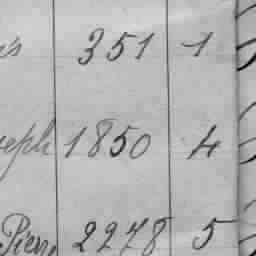 351 1
1850 4
Pierre 2278 5